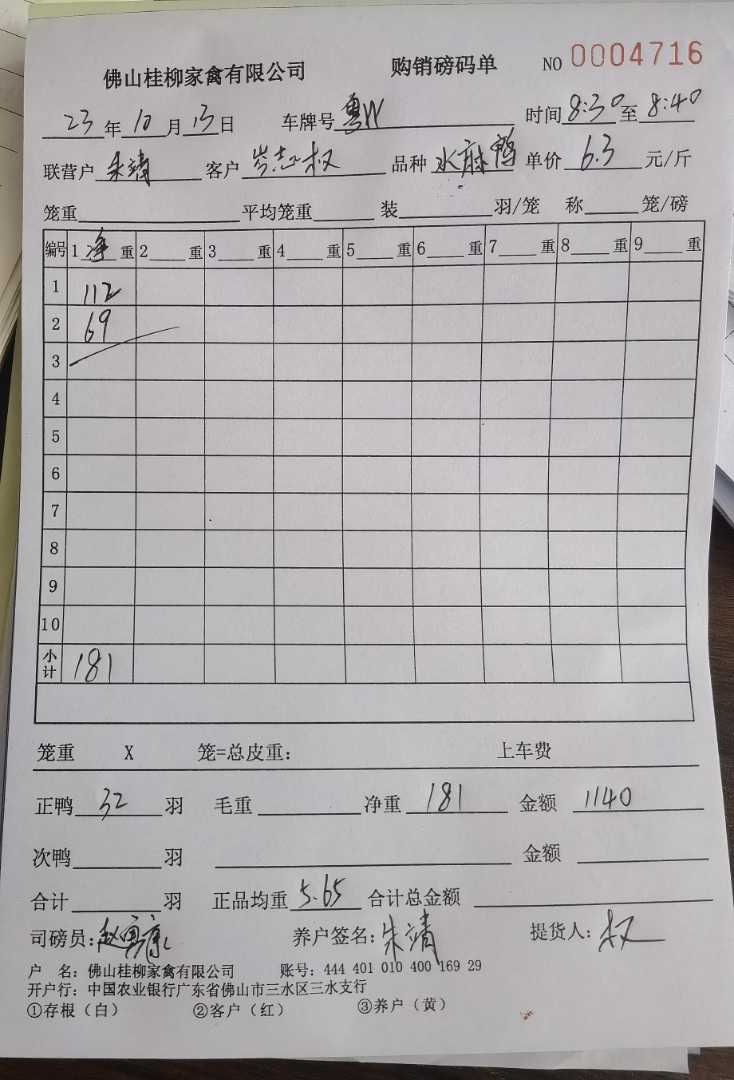 佛山桂柳家禽有限公司 购销磅码单 NO 0004716
23年10月13日 车牌号 粤W 时间 8:30 至 8:40
联营户 朱靖 客户 岑志权 品种 水麻鸭 单价 6.3 元/斤
笼重 平均笼重 装 羽/笼 称 笼/磅
编号 1 净 重 2 重 3 重 4 重 5 重 6 重 7 重 8 重 9 重
1 112
2 69
3
4
5
6
7
8
9
10
小计 181
笼重 X 笼=总皮重: 上车费
正鸭 32 羽 毛重 净重 181 金额 1140
次鸭 羽 金额
合计 羽 正品均重 5.65 合计总金额
司磅员: 养户签名: 朱靖 提货人: 权
户 名: 佛山桂柳家禽有限公司 账号: 444 401 010 400 169 29
开户行: 中国农业银行广东省佛山市三水区三水支行
①存根（白） ②客户（红） ③养户（黄）